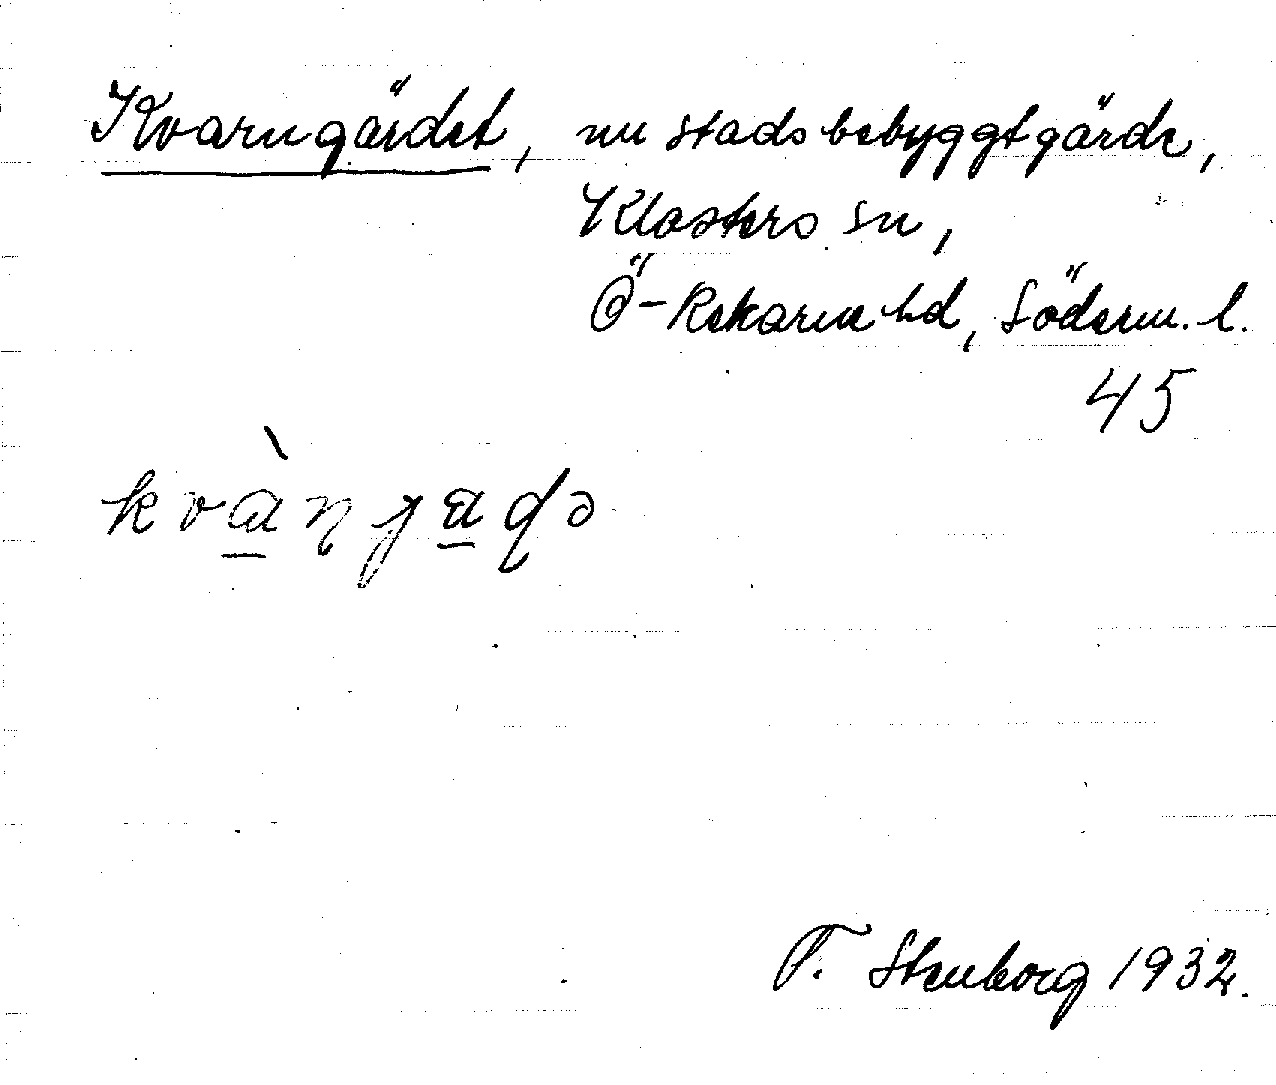 Kvarngärdet, nu stadsbebyggt gärde,
Klosters sn,
Ö-Rekarne hd, Söderm. l.
45
kvàɳjaɖə
T. Stenborg 1932.